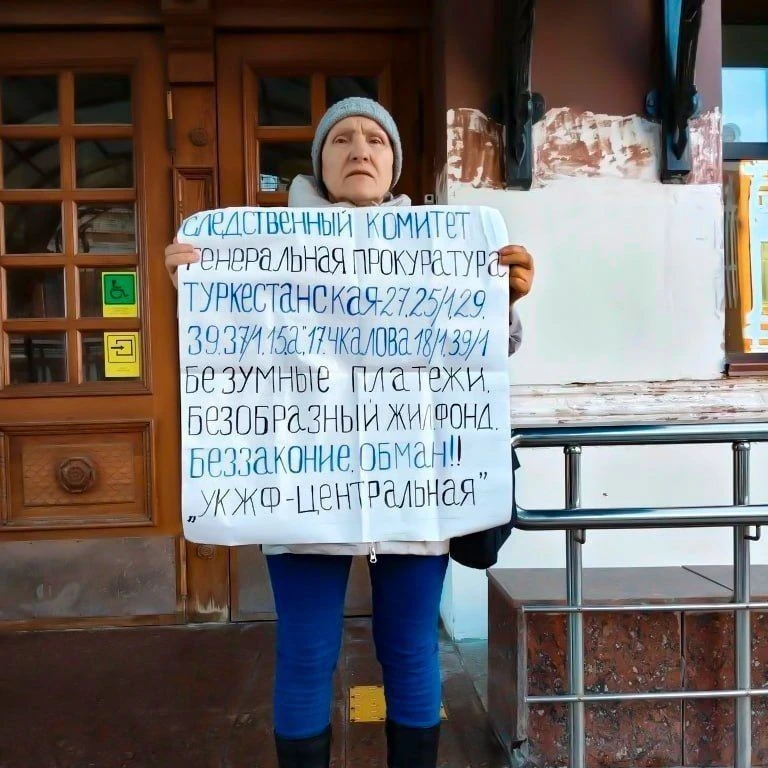 СЛЕДСТВЕННЫЙ КОМИТЕТ
ГЕНЕРАЛЬНАЯ ПРОКУРАТУРА
ТУРКЕСТАНСКАЯ-27,25/1,29.
39.37/1.15а,"17.ЧКАЛОВА 18/1.39/1
БЕЗУМНЫЕ ПЛАТЕЖИ.
БЕЗОБРАЗНЫЙ ЖИЛФОНД.
БЕЗЗАКОНИЕ, ОБМАН!!
„УКЖФ-ЦЕНТРАЛЬНАЯ"